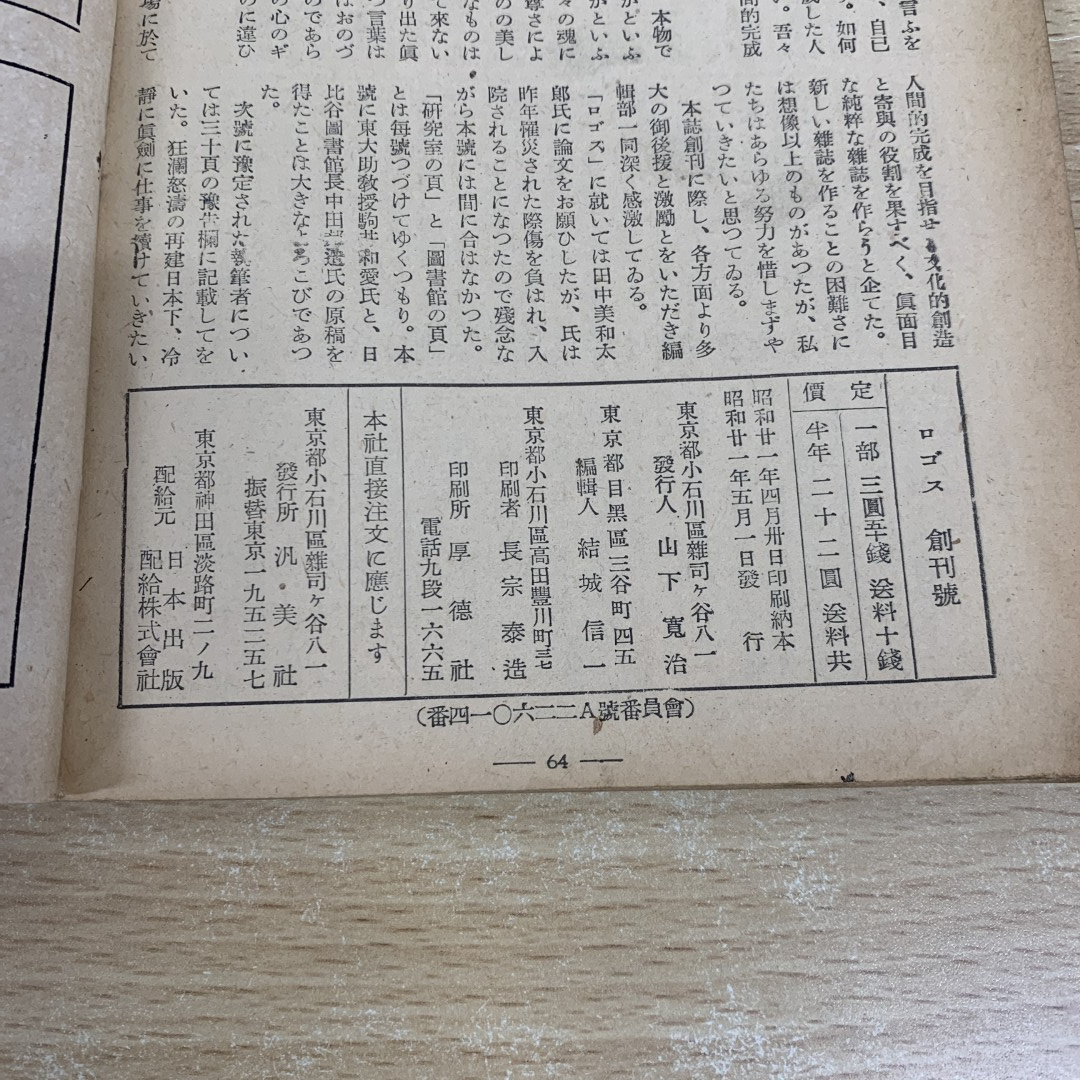 言ふを
、自己
。如何
成した人
い。吾々
間的完成
本物で
がどいふ
がといふ
々の魂に
奪さによ
のの美し
なものは
て來ない
り出た眞
つ言葉は
はおのづ
のであら
の心のギ
のに違ひ
場に於て
人間的完成を目指せ 文化的創造
と寄與の役割を果すべく、眞面目
な純粹な雜誌を作らうと企てた。
新しい雜誌を作ることの困難さに
は想像以上のものがあつたが、私
たちはあらゆる努力を惜しまずや
つていきたいと思つてゐる。
本誌創刊に際し、各方面より多
大の御後援と激勵とをいただき編
輯部一同深く感激してゐる。
「ロゴス」に就いては田中美和太
郎氏に論文をお願ひしたが、氏は
昨年罹災された際傷を負はれ、入
院されることになつたので殘念な
がら本號には間に合はなかつた。
「硏究室の頁」と「圖書館の頁」
とは每號つづけてゆくつもり。本
號に東大助敎授駒井和愛氏と、日
比谷圖書館長中田邦造氏の原稿を
得たことは大きなよろこびであつ
た。
次號に豫定された執筆者につい
ては三十頁の豫告欄に記載してを
いた。狂瀾怒濤の再建日本下、冷
靜に眞劍に仕事を續けていきたい
ロゴス 創刊號
定價
一部 三圓五十錢 送料十錢
半年 二十二圓 送料共
昭和廿一年四月卅日印刷納本
昭和廿一年五月一日發行
東京都小石川區雜司ヶ谷八一
發行人 山下寬治
東京都目黑區三谷町四五
編輯人 結城信一
東京都小石川區高田豐川町三七
印刷者 長宗泰造
印刷所 厚德社
電話九段一六六五
本社直接注文に應じます
東京都小石川區雜司ヶ谷八一
發行所 汎美社
振替東京一九五二五七
東京都神田區淡路町二ノ九
配給元 日本出版
配給株式會社
(番四一〇六二二A號番員會)
— 64 —